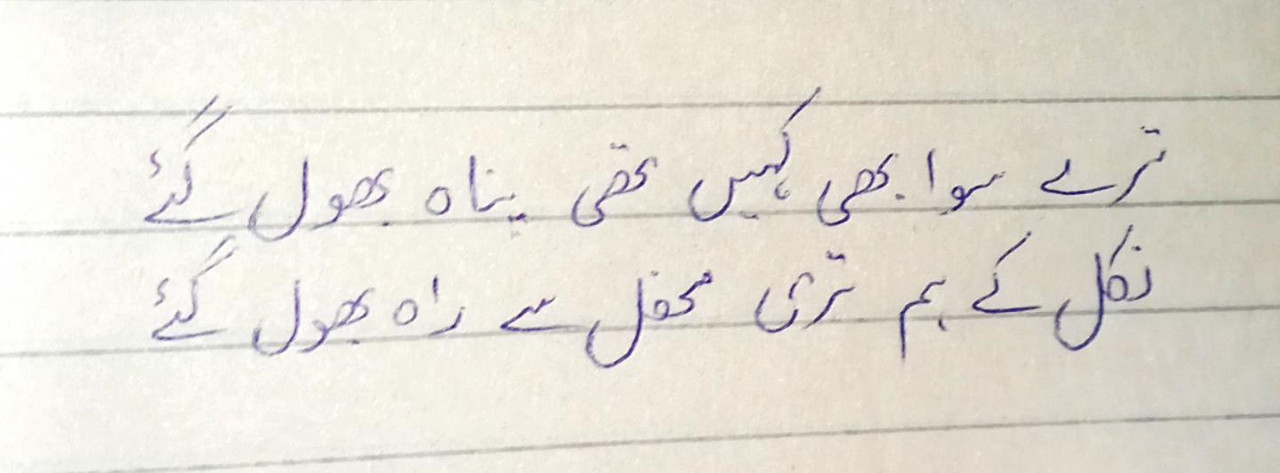 ترے سوا بھی کہیں تھی پناہ بھول گئے
نکل کے ہم تری محفل سے راہ بھول گئے